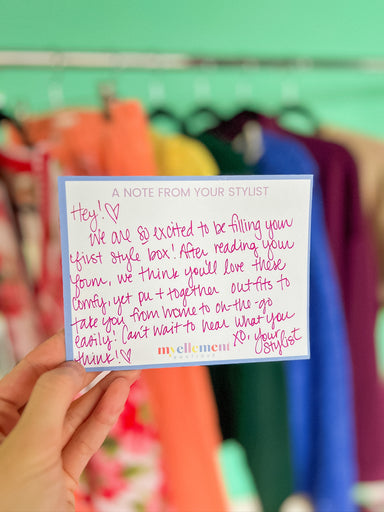 A NOTE FROM YOUR STYLIST
Hey! ♡
We are so excited to be filling your
first style box! After reading your
form, we think you'll love these
comfy, yet put together outfits to
take you from home to on-the-go
easily! Can't wait to hear what you
think! ♡
XO, your
stylist
myellement
BOUTIQUE